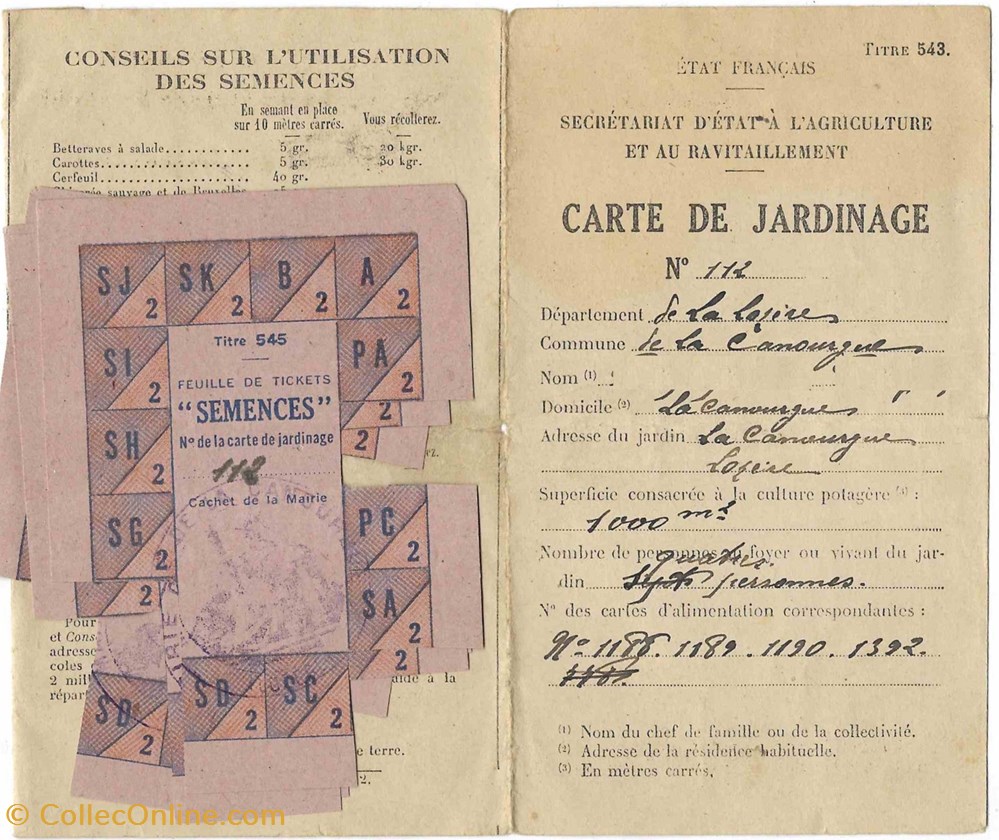 CONSEILS SUR L'UTILISATION
DES SEMENCES
En semant en place
sur 10 mètres carrés.
Vous récolterez.
Betteraves à salade........... 5 gr. 20 kgr.
Carottes........... 5 gr. 30 kgr.
Cerfeuil........... 40 gr.
sauvage et de Bruxelles
SJ 2 SK 2 B 2 A 2
SI 2 PA 2
SH 2 2
SG 2 PC 2
SA 2
SD 2 SC 2
2
Titre 545
FEUILLE DE TICKETS
"SEMENCES"
No de la carte de jardinage
112
Cachet de la Mairie
Pour
et Cons
adresse
coles
2 mill
répar
à la
e terre.
2.
TITRE 543.
ÉTAT FRANÇAIS
SECRÉTARIAT D'ÉTAT À L'AGRICULTURE
ET AU RAVITAILLEMENT
CARTE DE JARDINAGE
No 112
Département de La Lozère
Commune de La Canourgue
Nom (1)
Domicile (2) La Canourgue " "
Adresse du jardin La Canourgue
Lozère
Superficie consacrée à la culture potagère (3) :
1000 m2
Nombre de personnes au foyer ou vivant du jar-
quatre
din sept personnes.
No des cartes d'alimentation correspondantes :
No 1186. 1189. 1190. 1392.
(1) Nom du chef de famille ou de la collectivité.
(2) Adresse de la résidence habituelle.
(3) En mètres carrés.
© CollecOnline.com